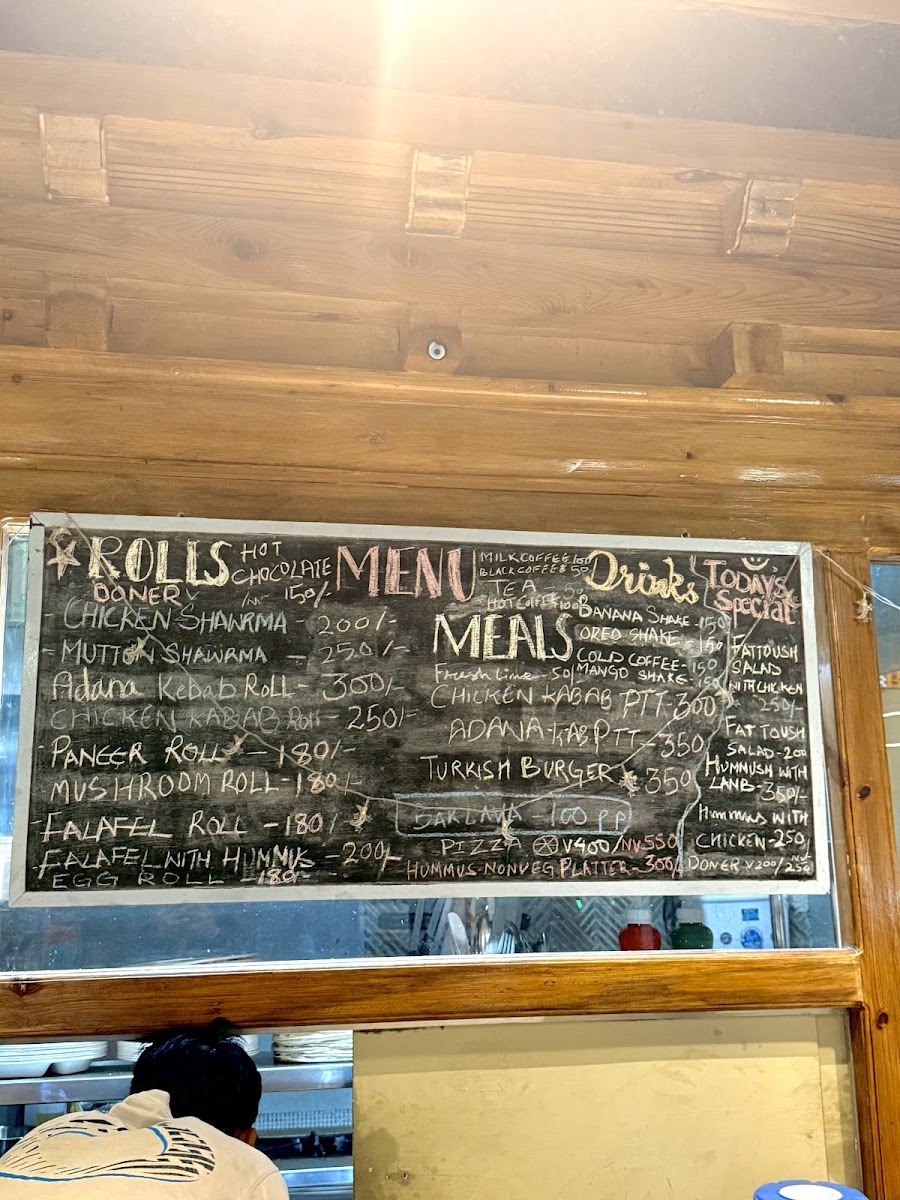 ROLLS
DONER
HOT
CHOCOLATE
150/-
CHICKEN SHAWRMA - 200/-
- MUTTON SHAWRMA - 250/-
Adana Kebab ROLL - 300/-
CHICKEN KABAB Roll - 250/-
PANEER ROLL - 180/-
MUSHROOM ROLL - 180/-
FALAFEL ROLL - 180/-
FALAFEL WITH HUMMUS - 200/-
EGG ROLL - 180/-
MENU
MILK COFFEE 100
BLACK COFFEE 50
TEA 50
HOT COFFEE 100
MEALS
Fresh Lime - 50/-
CHICKEN KABAB PTT - 300
ADANA KAB PTT - 350
TURKISH BURGER 350
BAKLAVA - 100 PP
PIZZA V400/NV550
HUMMUS-NONVEG PLATTER - 300/-
Drinks
BANANA SHAKE - 150
OREO SHAKE - 150
COLD COFFEE - 150
MANGO SHAKE - 150
TODAY'S
Special
FATTOUSH
SALAD
WITH CHICKEN
250/-
FATTOUSH
SALAD - 200
HUMMUSH WITH
LANB - 350/-
HUMMUS WITH
CHICKEN - 250/
DONER V200/NV250